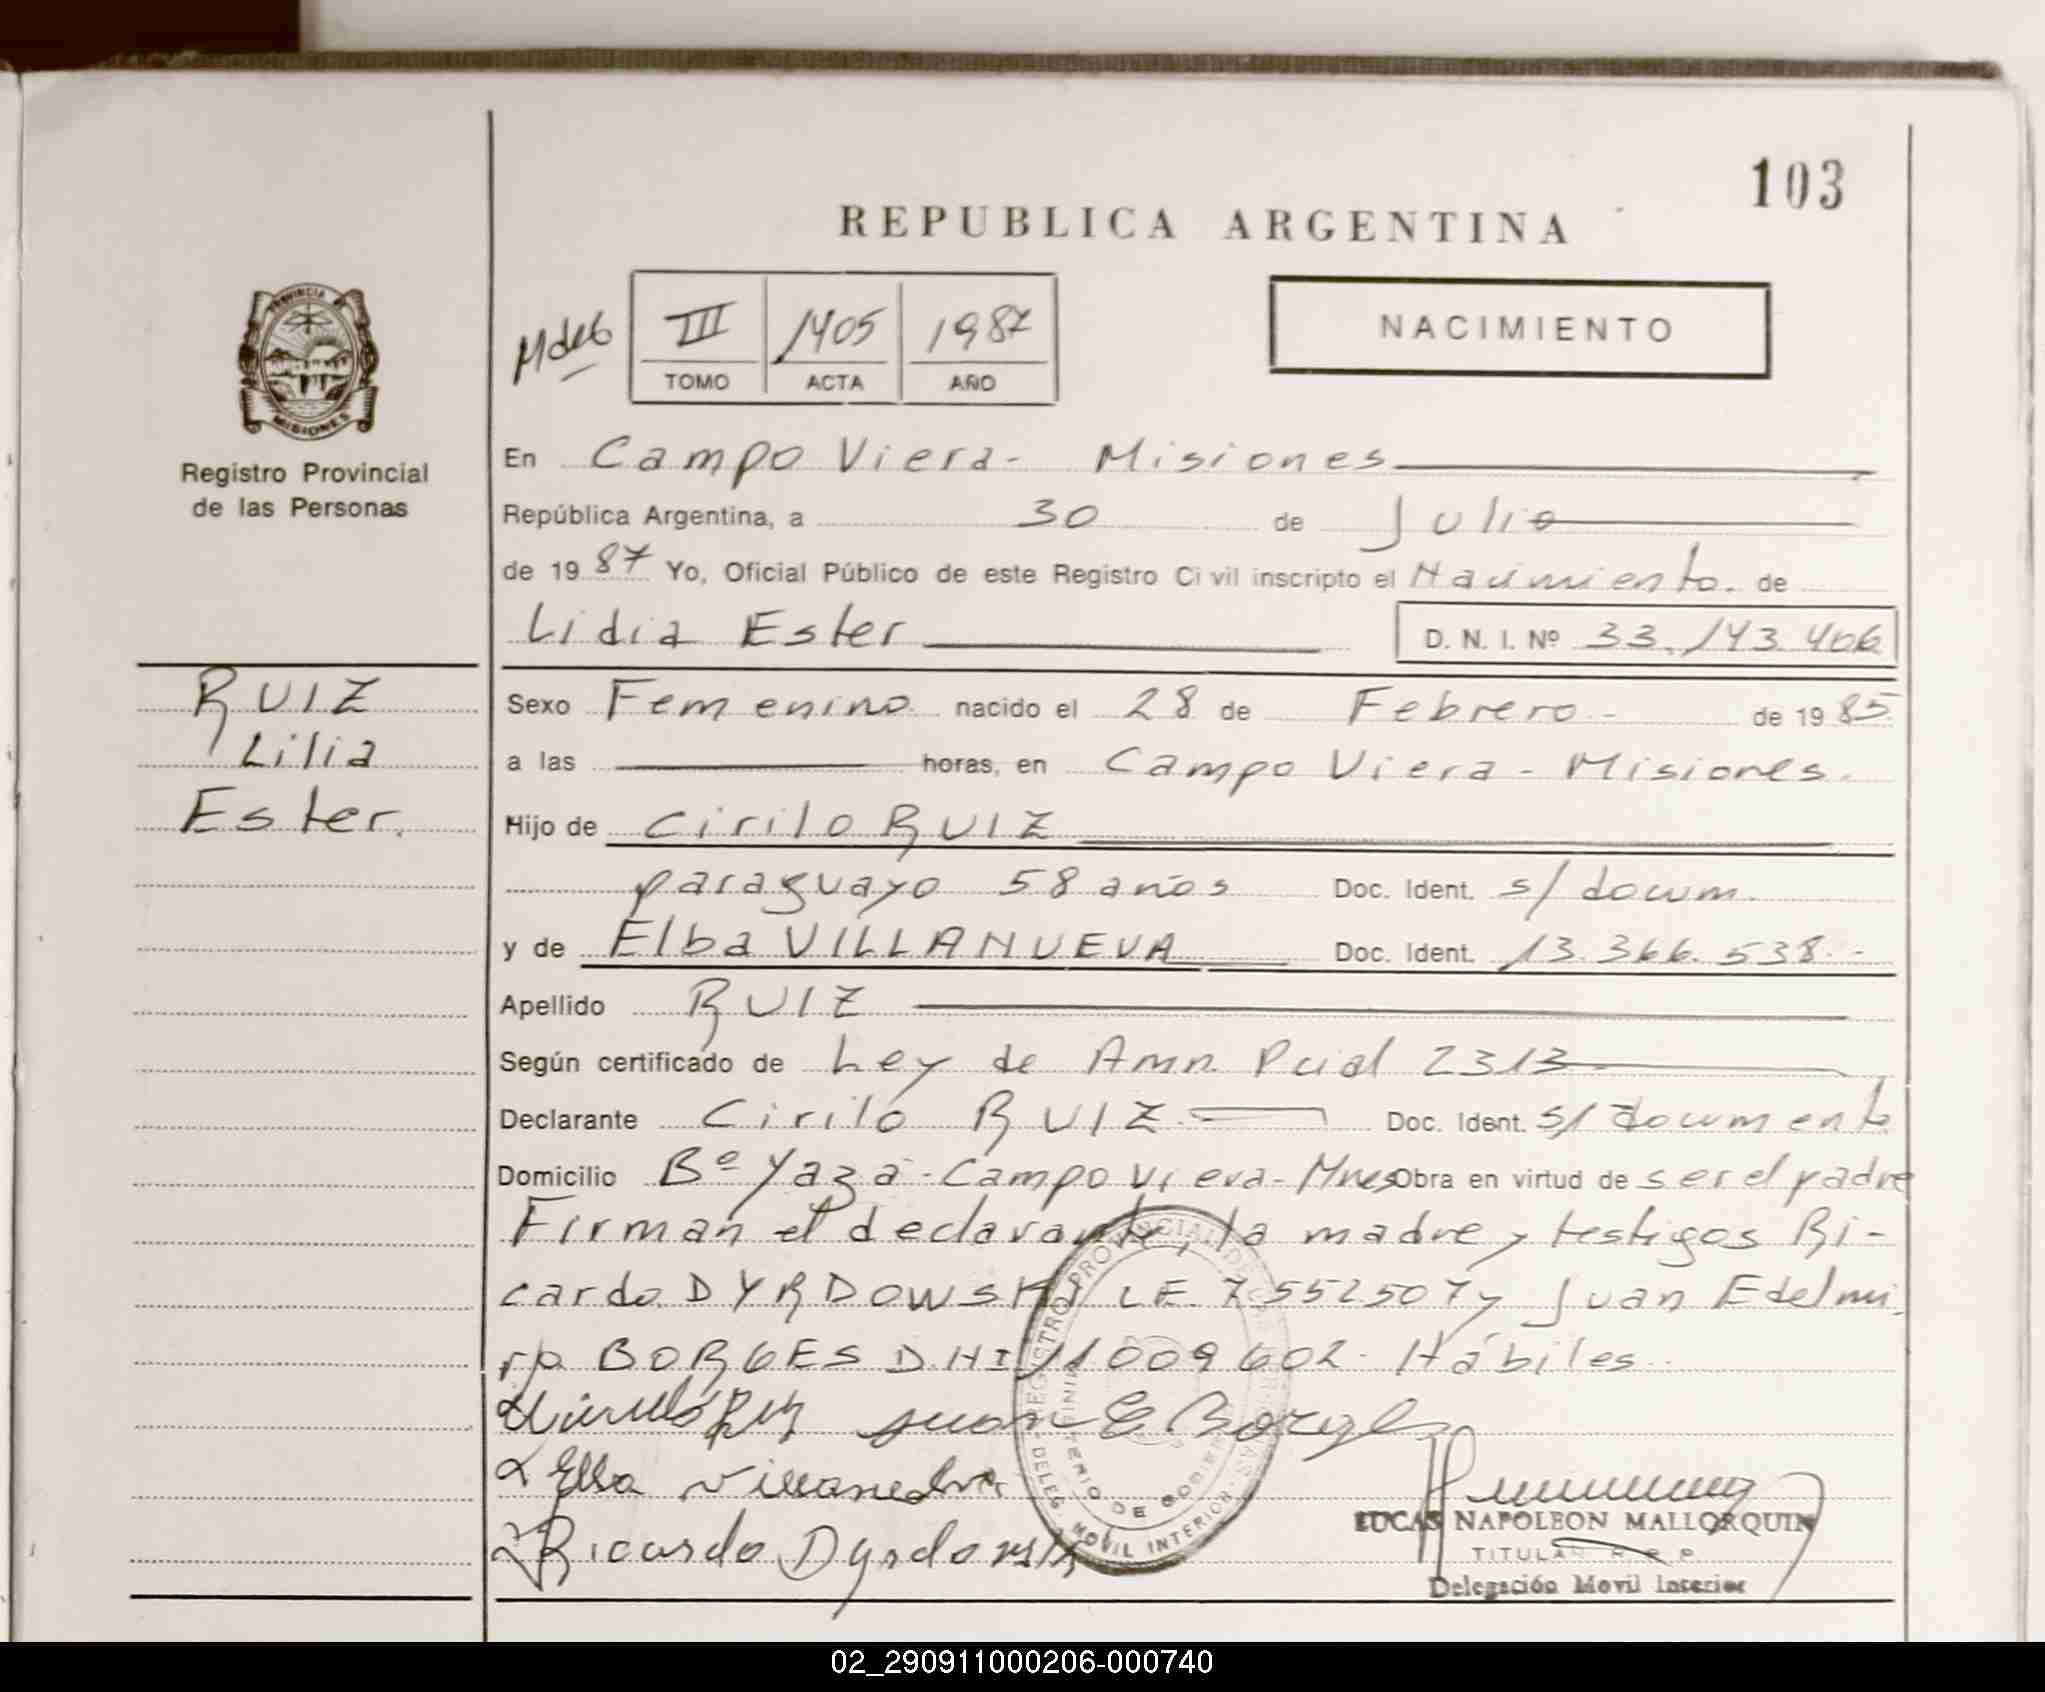 103
REPUBLICA ARGENTINA
PROVINCIA
MISIONES
Registro Provincial
de las Personas
III 1405 1987
TOMO ACTA AÑO
NACIMIENTO
En Campo Viera - Misiones
República Argentina, a 30 de Julio
de 1987 Yo, Oficial Público de este Registro Civil inscripto el Nacimiento. de
Lidia Ester D. N. I. Nº 33.143.406
RUIZ
Lilia
Ester.
Sexo Femenino nacido el 28 de Febrero - de 1985
a las horas, en Campo Viera - Misiones.
Hijo de Cirilo RUIZ
paraguayo 58 años Doc. Ident. s/ docum.
y de Elba VILLANUEVA Doc. Ident. 13.366.538.-
Apellido RUIZ
Según certificado de Ley de Amn. Pcial 2313
Declarante Cirilo RUIZ Doc. Ident. s/ documento
Domicilio Bº Yazá - Campo Viera - Mnes Obra en virtud de ser el padre
Firman el declarante, la madre y testigos Ri-
cardo DYRDOWSKI LE 7552507 y Juan Edelmi
ro BORGES D.NI 11009602. Hábiles.
Juan E Borges
Elba Villanueva
Ricardo Dyrdowski
REGISTRO PROVINCIAL DE LAS PERSONAS
MINISTERIO DE GOBIERNO
DELEG. MOVIL INTERIOR
LUCAS NAPOLEON MALLORQUIN
TITULAR R. P. P.
Delegación Movil Interior
02_290911000206-000740